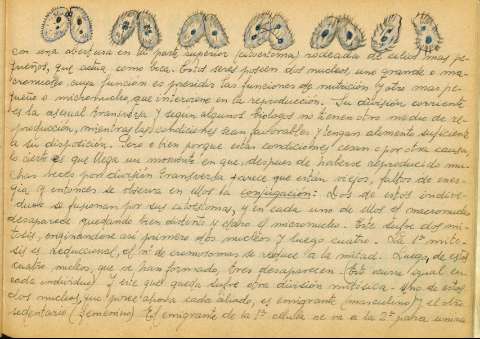 con una abertura en la parte superior (citostoma) rodeada de cilios mas pe-
queños, que actúa como boca. Estos seres poseen dos nucleos, uno grande o ma-
cronucleo, cuya función es presidir las funciones de nutrición y otro mas pe-
queño o micronucleo, que interviene en la reproducción. Su división corriente
es la asexual transversa y según algunos biologos no tienen otro medio de re-
producción, mientras las condiciones sean favorables y tengan alimento suficiente
a su disposición. Pero o bien porque estas condiciones cesan o por otra causa,
lo cierto es que llega un momento en que, despues de haberse reproducido mu-
chas veces por división transversa parece que están viejos, faltos de ener-
gía, y entonces se observa en ellos la conjugación: Dos de estos indivi-
duos se fusionan por sus citostomas, y en cada uno de ellos el macronucleo
desaparece quedando bien distinto y claro el micronucleo. Este sufre dos mi-
tosis, originandose así primero dos nucleos y luego cuatro. La 1ª mito-
sis es reduccional, el nº de cromosomas se reduce a la mitad. Luego, de estos
cuatro nucleos, que se han formado, tres desaparecen (Esto ocurre igual en
cada individuo) y ese que queda sufre otra división mitosica. Uno de estos
dos nucleos, que posee ahora cada aliado, es emigrante (masculino) y el otro
sedentario (femenino) El emigrante de la 1ª celula se va a la 2ª para unirse